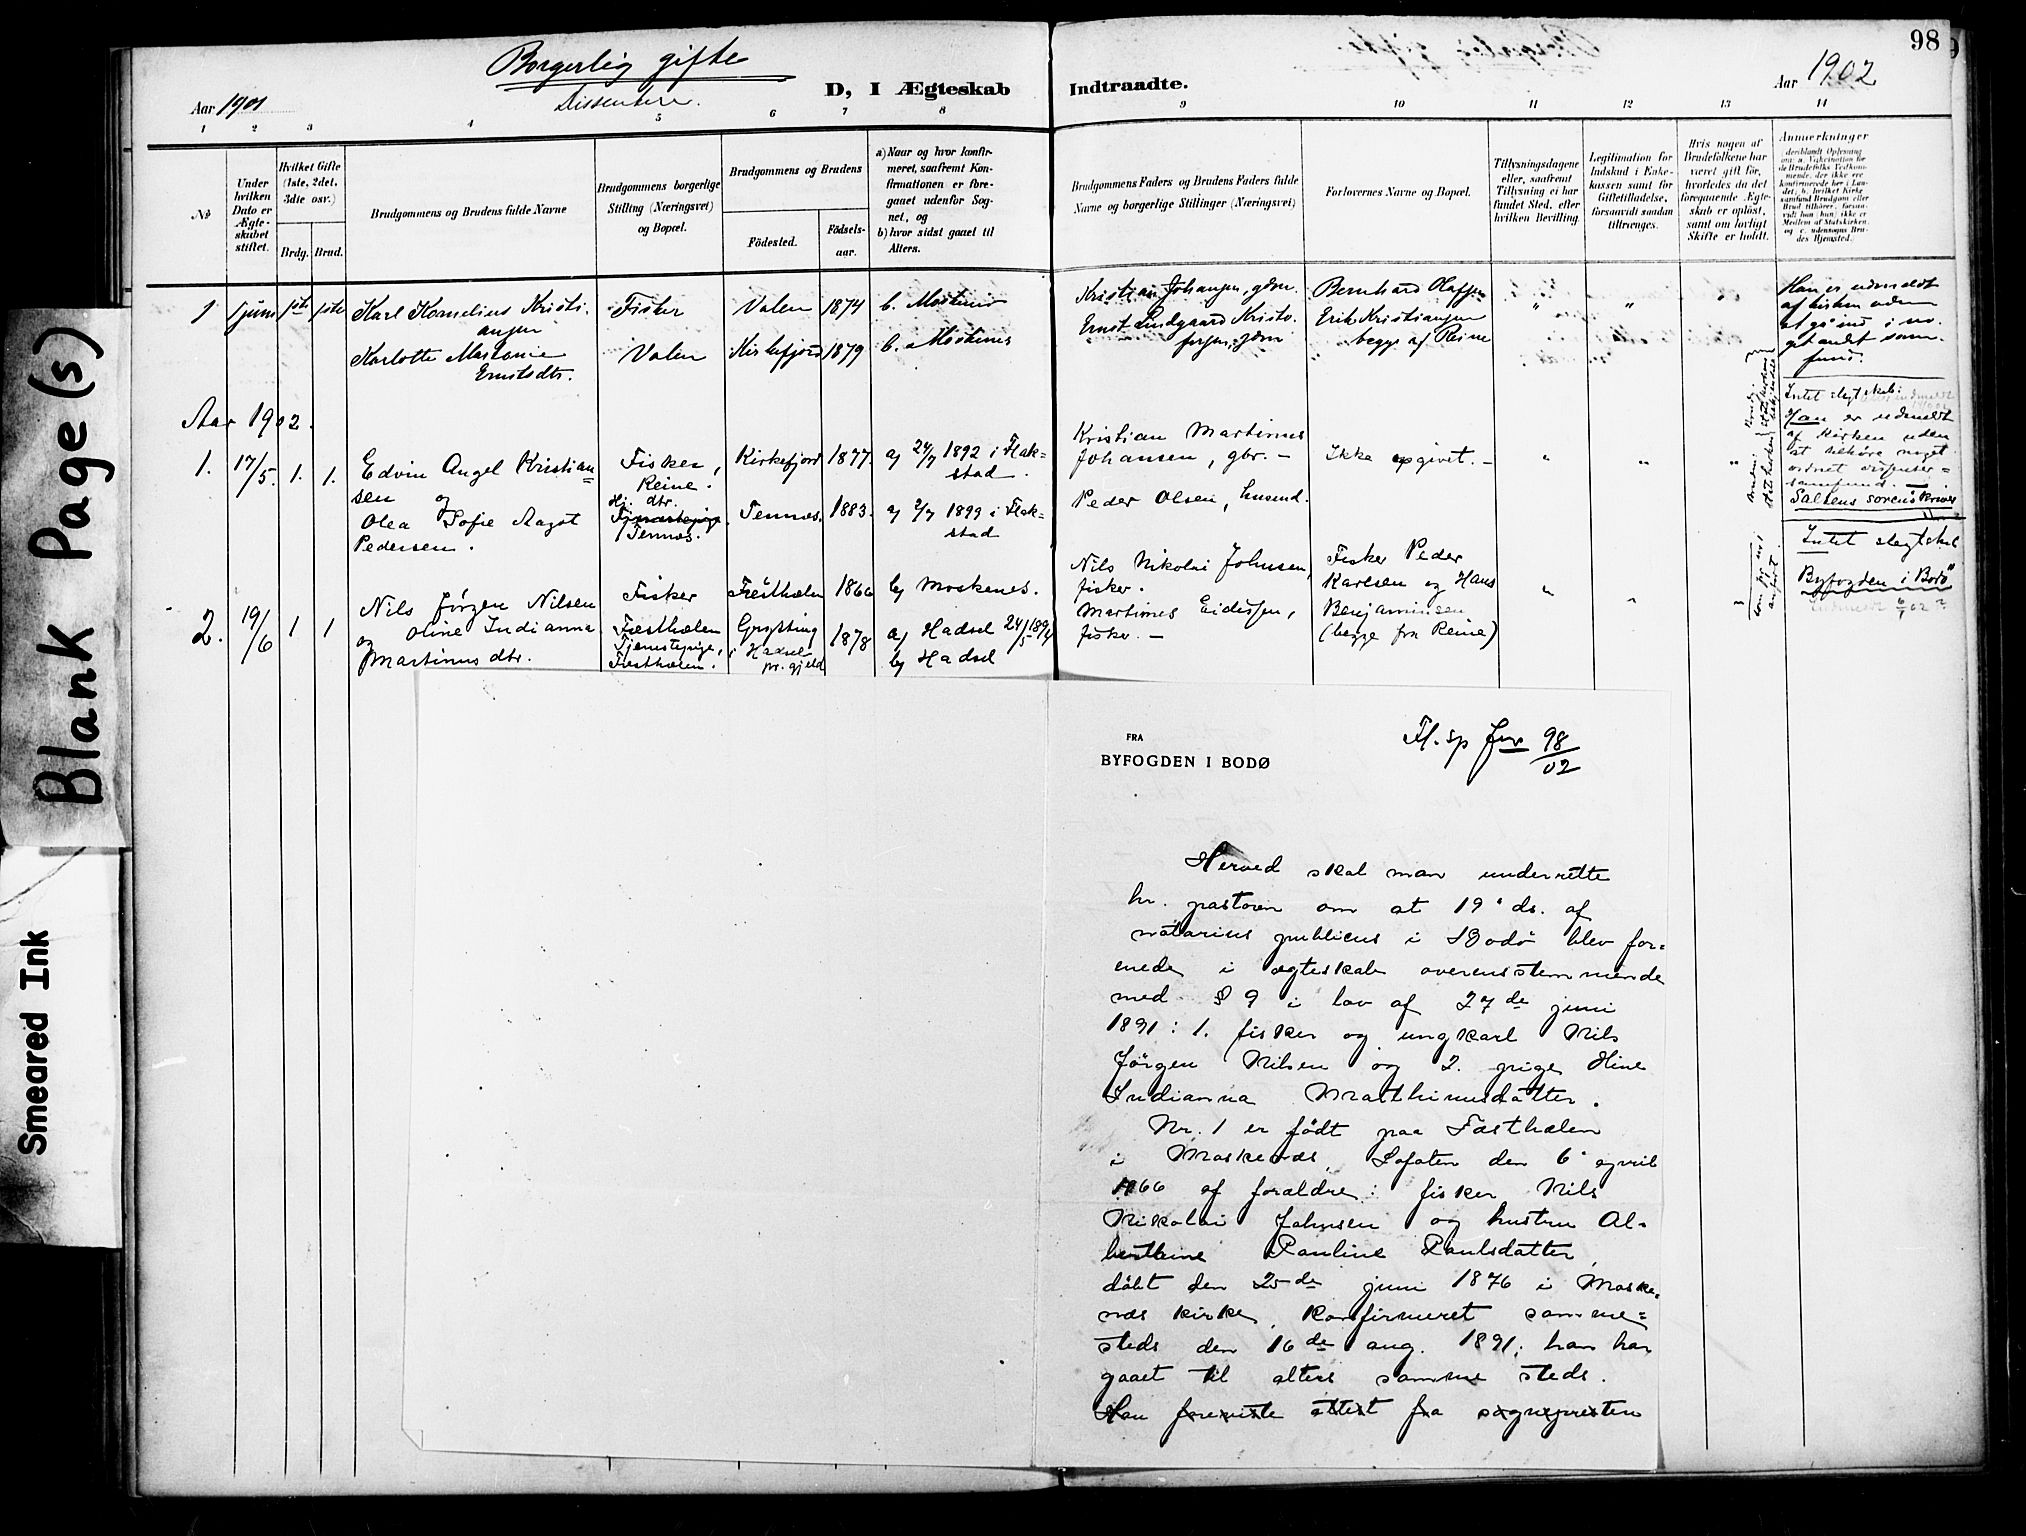 Blank Page(s)
Smeared Ink
98
Borgerlig gifte
Dissentere.
Aar 1901
D, I Ægteskab Indtraadte.
Aar 1902
1 2 3 4 5 6 7 8 9 10 11 12 13 14
No
Under hvilken Dato er Ægteskabet stiftet.
Hvilket Gifte (1ste, 2det, 3die osv.)
Brdg. Brud.
Brudgommens og Brudens fulde Navne
Brudgommens borgerlige Stilling (Næringsvei) og Bopæl.
Brudgommens og Brudens
Födested.
Födsels-aar.
a) Naar og hvor konfir-
meret, saafremt Kon-
firmationen er fore-
gaaet udenfor Sog-
net, og
b) hvor sidst gaaet til
Alters.
Brudgommens Faders og Brudens Faders fulde
Navne og borgerlige Stillinger (Næringsvei)
Forlovernes Navne og Bopæl.
Tillysningsdagene
eller, saafremt
Tillysning ei har
fundet Sted, efter
hvilken Bevilling.
Legitimation for
Indskud i Enke-
kassen samt for
Giftetilladelse,
forsaavidt saadan
tiltrænges.
Hvis nogen af
Brudefolkene har
været gift før,
hvorledes da det
foregaaende Ægte-
skab er oplöst,
samt om lovligt
Skifte er holdt.
Anmerkninger
1 1ste 1ste
Karl Kornelius Kristi-
ansen
Karlotte
Ernstsdtr.
Fisker
Valen
Valen 1874 b. Moskenes
Kirkefjord 1879 b. Moskenes
Kristian Johansen, gbr.
Ernst Lindgaard Kristo-
fersen, gbr.
Bernhard Olafsen
Erik Kristiansen
begge af Reine
Han er udmeldt
af kirken uden
at gå ind i no-
get andet sam-
fund.
Aar 1902.
1. 17/5. 1. 1.
Edvin Angel Kristian=
sen og
Olea Sofie Aagot
Pedersen.
Fisker,
Reine.
Hj. dtr.
Tennes.
Kirkefjord 1877. a) 24/7 1892 i Flak=
stad.
Tennes. 1883. a) 2/7 1899 i Flak=
stad
Kristian Martinus
Johansen, gbr. -
Peder Olsen, husmd.
Ikke opgivet. -
Intet slegtskab.
Han er udmeldt
af kirken uden
at tilhöre noget
ordnet dissenter=
samfund. -
Saltens sorenskriver
2. 19/6 1 1
Nils Jørgen Nilsen
og Oline Indianna
Martinusdtr.
Fisker
Festhælen
Tjenestepige,
Festhælen.
Festhælen 1866 b) Moskenes.
Grytting
i Hadsel
pr. gjeld
1878 a) Hadsel 24/5 1894
b) Hadsel
Nils Nikolai Johnsen,
fisker.
Martinus Eidissen,
fisker. -
Fisker Peder
Karlsen og Hans
Benjaminsen
(begge fra Reine)
Intet slegtskab
Byfogden i Bodö
FRA
BYFOGDEN I BODØ
Fl. sp jnr 98/02
Herved skal man underrette
hr. pastoren om at 19' ds. af
notarius publicus i Bodö blev for=
enede i ægteskab overensstemmende
med § 9 i lov af 27de juni
1891: 1. fisker og ungkarl Nils
Jörgen Nilsen og 2. pige Oline
Indianna Mathinusdatter.
Nr. 1 er födt paa Fæsthælen
i Moskenæs, Lofoten den 6' april
1866 af forældre: fisker Nils
Nikolai Johnsen og hustru Al-
bertine Pauline Paulsdatter,
döbt den 25de juni 1876 i Moske-
næs kirke, konfirmeret samme=
steds den 16de aug. 1891; han har
gaaet til alters samme steds.
Han foreviste attest fra sognepresten